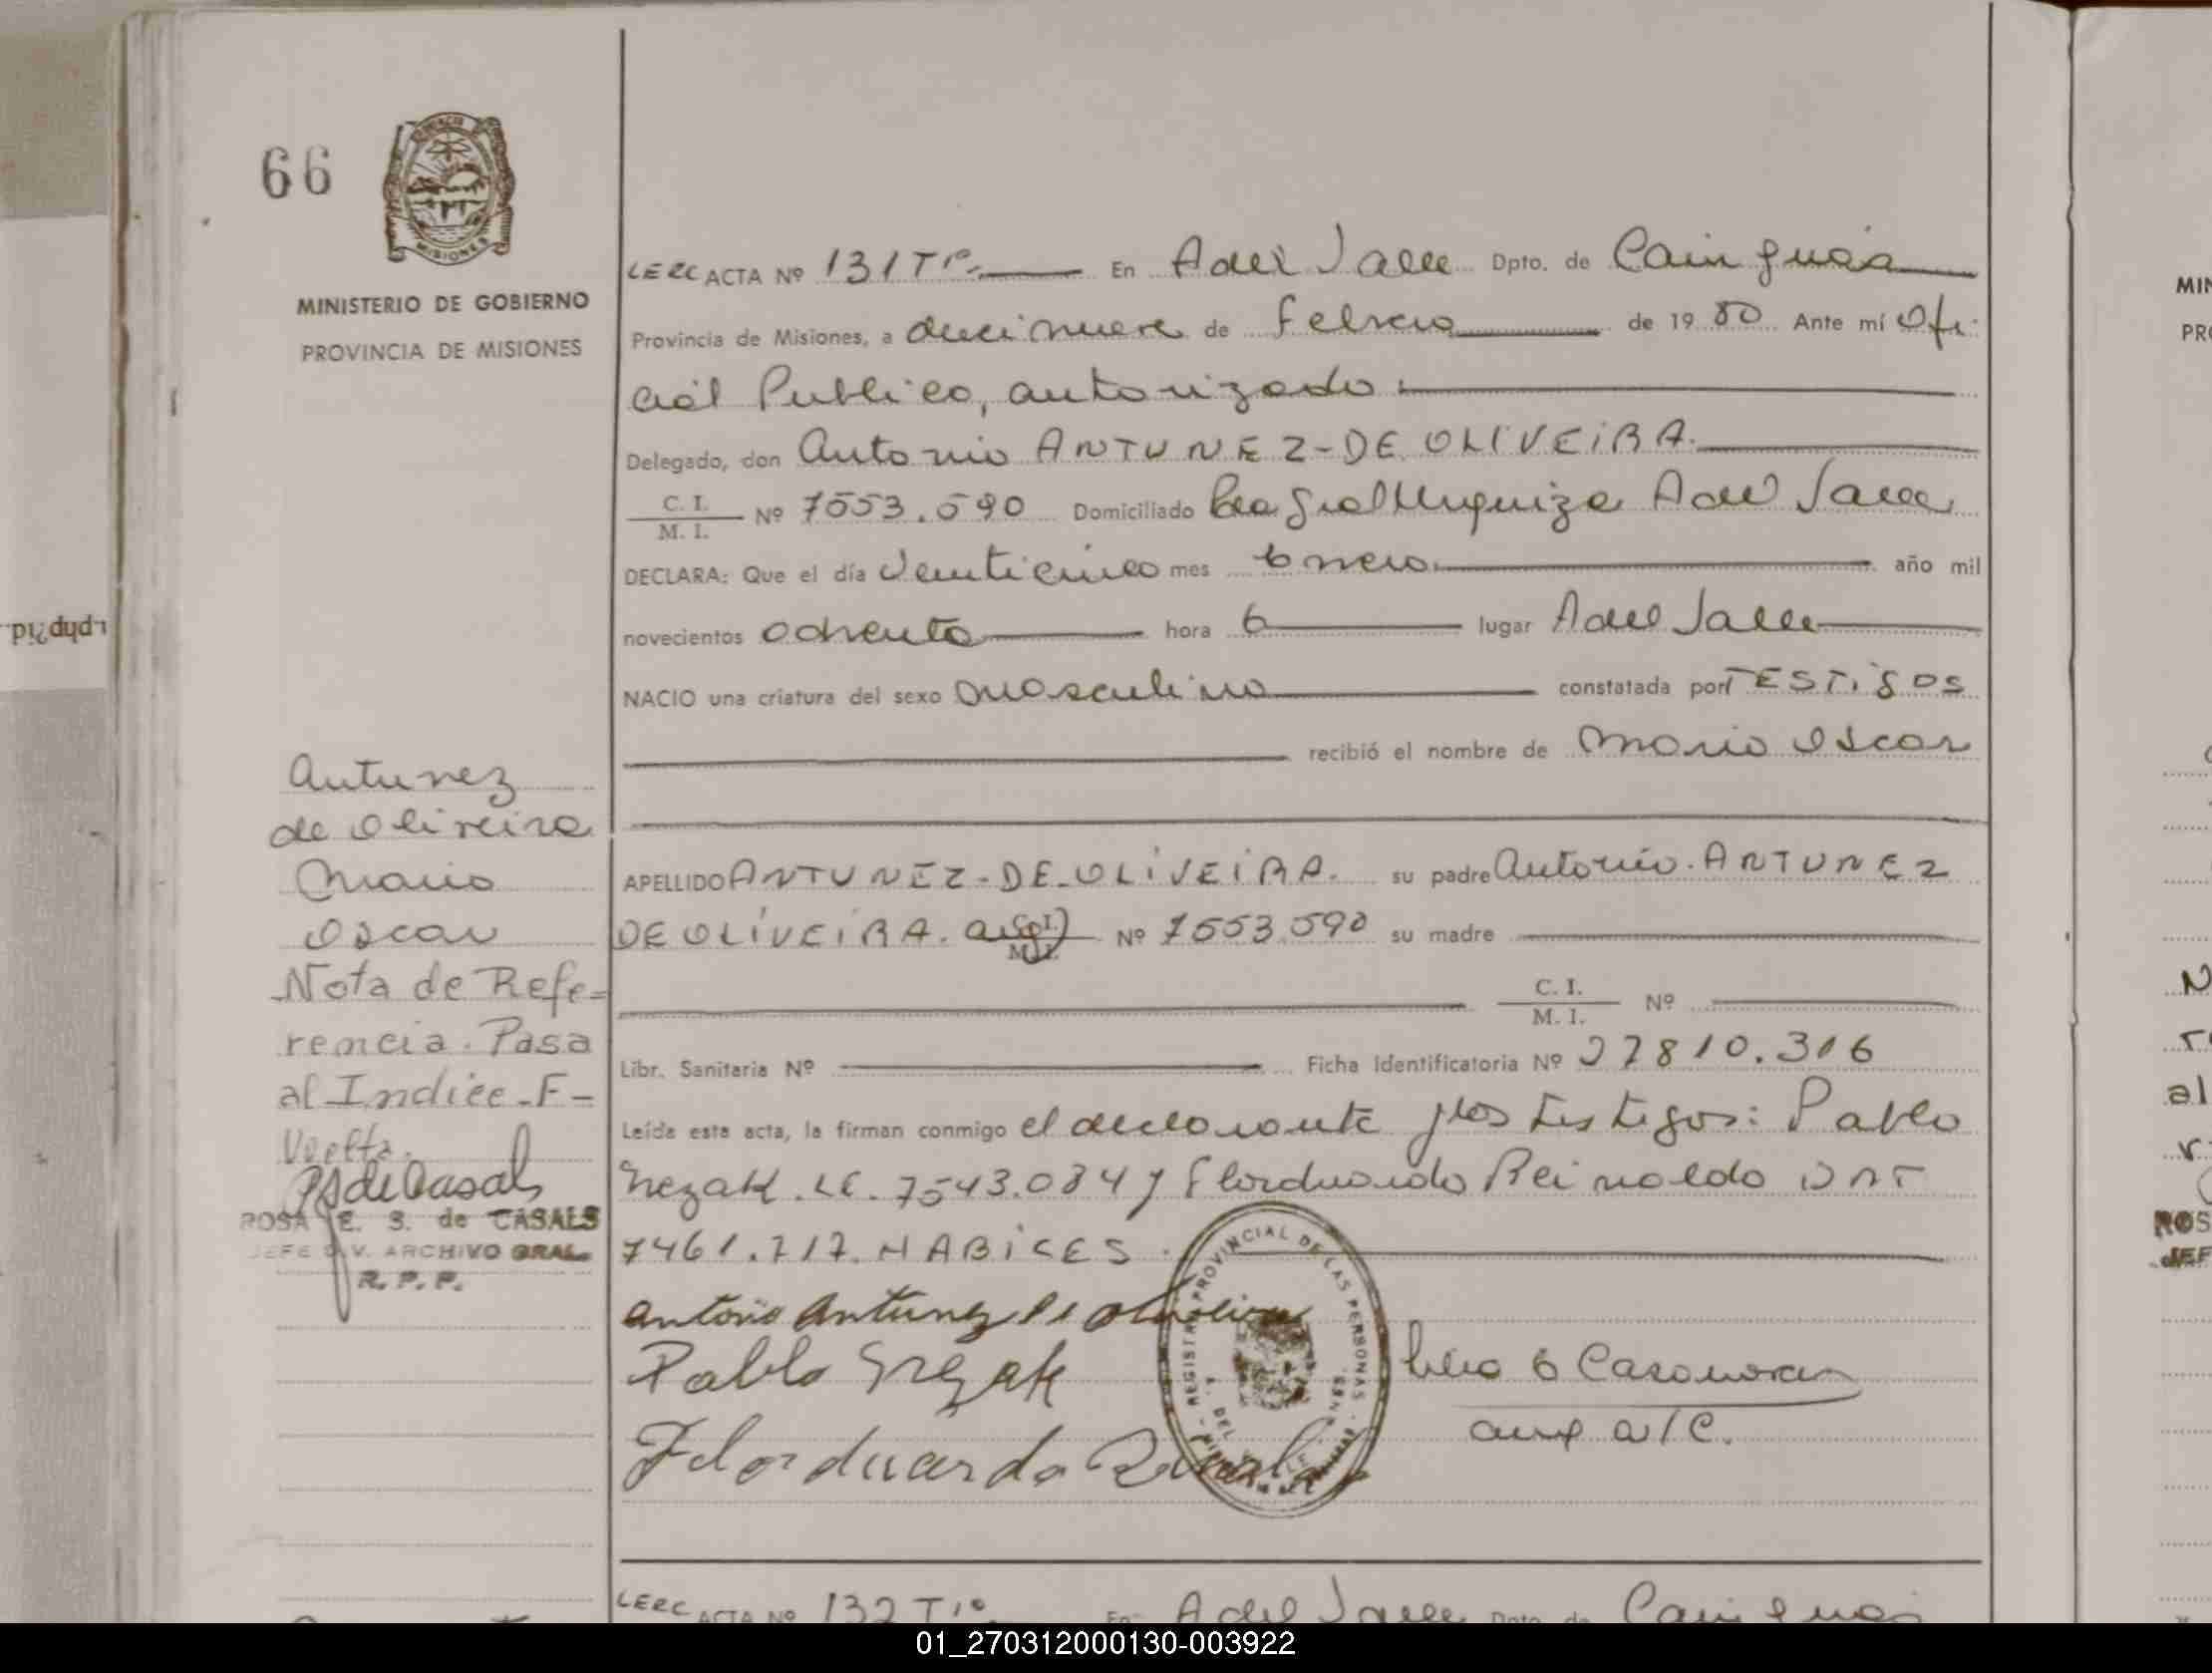 66
MISIONES
MINISTERIO DE GOBIERNO
PROVINCIA DE MISIONES
LERC ACTA Nº 131 Tº. En A del Valle Dpto. de Cainguás
Provincia de Misiones, a diecinueve de febrero de 1980 Ante mí Ofi-
cial Publico, autorizado
Delegado, don Antonio ANTUNEZ-DE OLIVEIRA.
C. I. / M. I. Nº 7553.590 Domiciliado Cnia Gral Urquiza A del Valle
DECLARA: Que el día Veinticinco mes Enero año mil
novecientos ochenta hora 6 lugar A del Valle
NACIO una criatura del sexo masculino constatada por TESTiGOS
recibió el nombre de Mario Oscar
APELLIDO ANTUNEZ-DE-OLiVEiRA. su padre Antonio. ANTUNEZ
DE OLiVEiRA. arg) C. I. / M. I. Nº 7553.590 su madre
C. I. / M. I. Nº
Libr. Sanitaria Nº Ficha Identificatoria Nº 27810.316
Leída esta acta, la firman conmigo el declarante y los testigos: Pablo
Grezak. LE. 7543.084 y Florduardo Reinaldo DNI
7461.717. HABiLES.
Antonio Antunez de Oliveira
Pablo Grezak
Florduardo
Casanova
aux a/c.
REGISTRO PROVINCIAL DE LAS PERSONAS
Antunez
de Oliveira
Mario
Oscar
Nota de Refe=
rencia. Pasa
al Indice-F-
Vuelta.
ROSA E. S. de CASALS
JEFE DIV. ARCHIVO GRAL.
R. P. P.
LERC ACTA Nº 132 Tº En A del Valle Dpto. de Cainguás
01_270312000130-003922